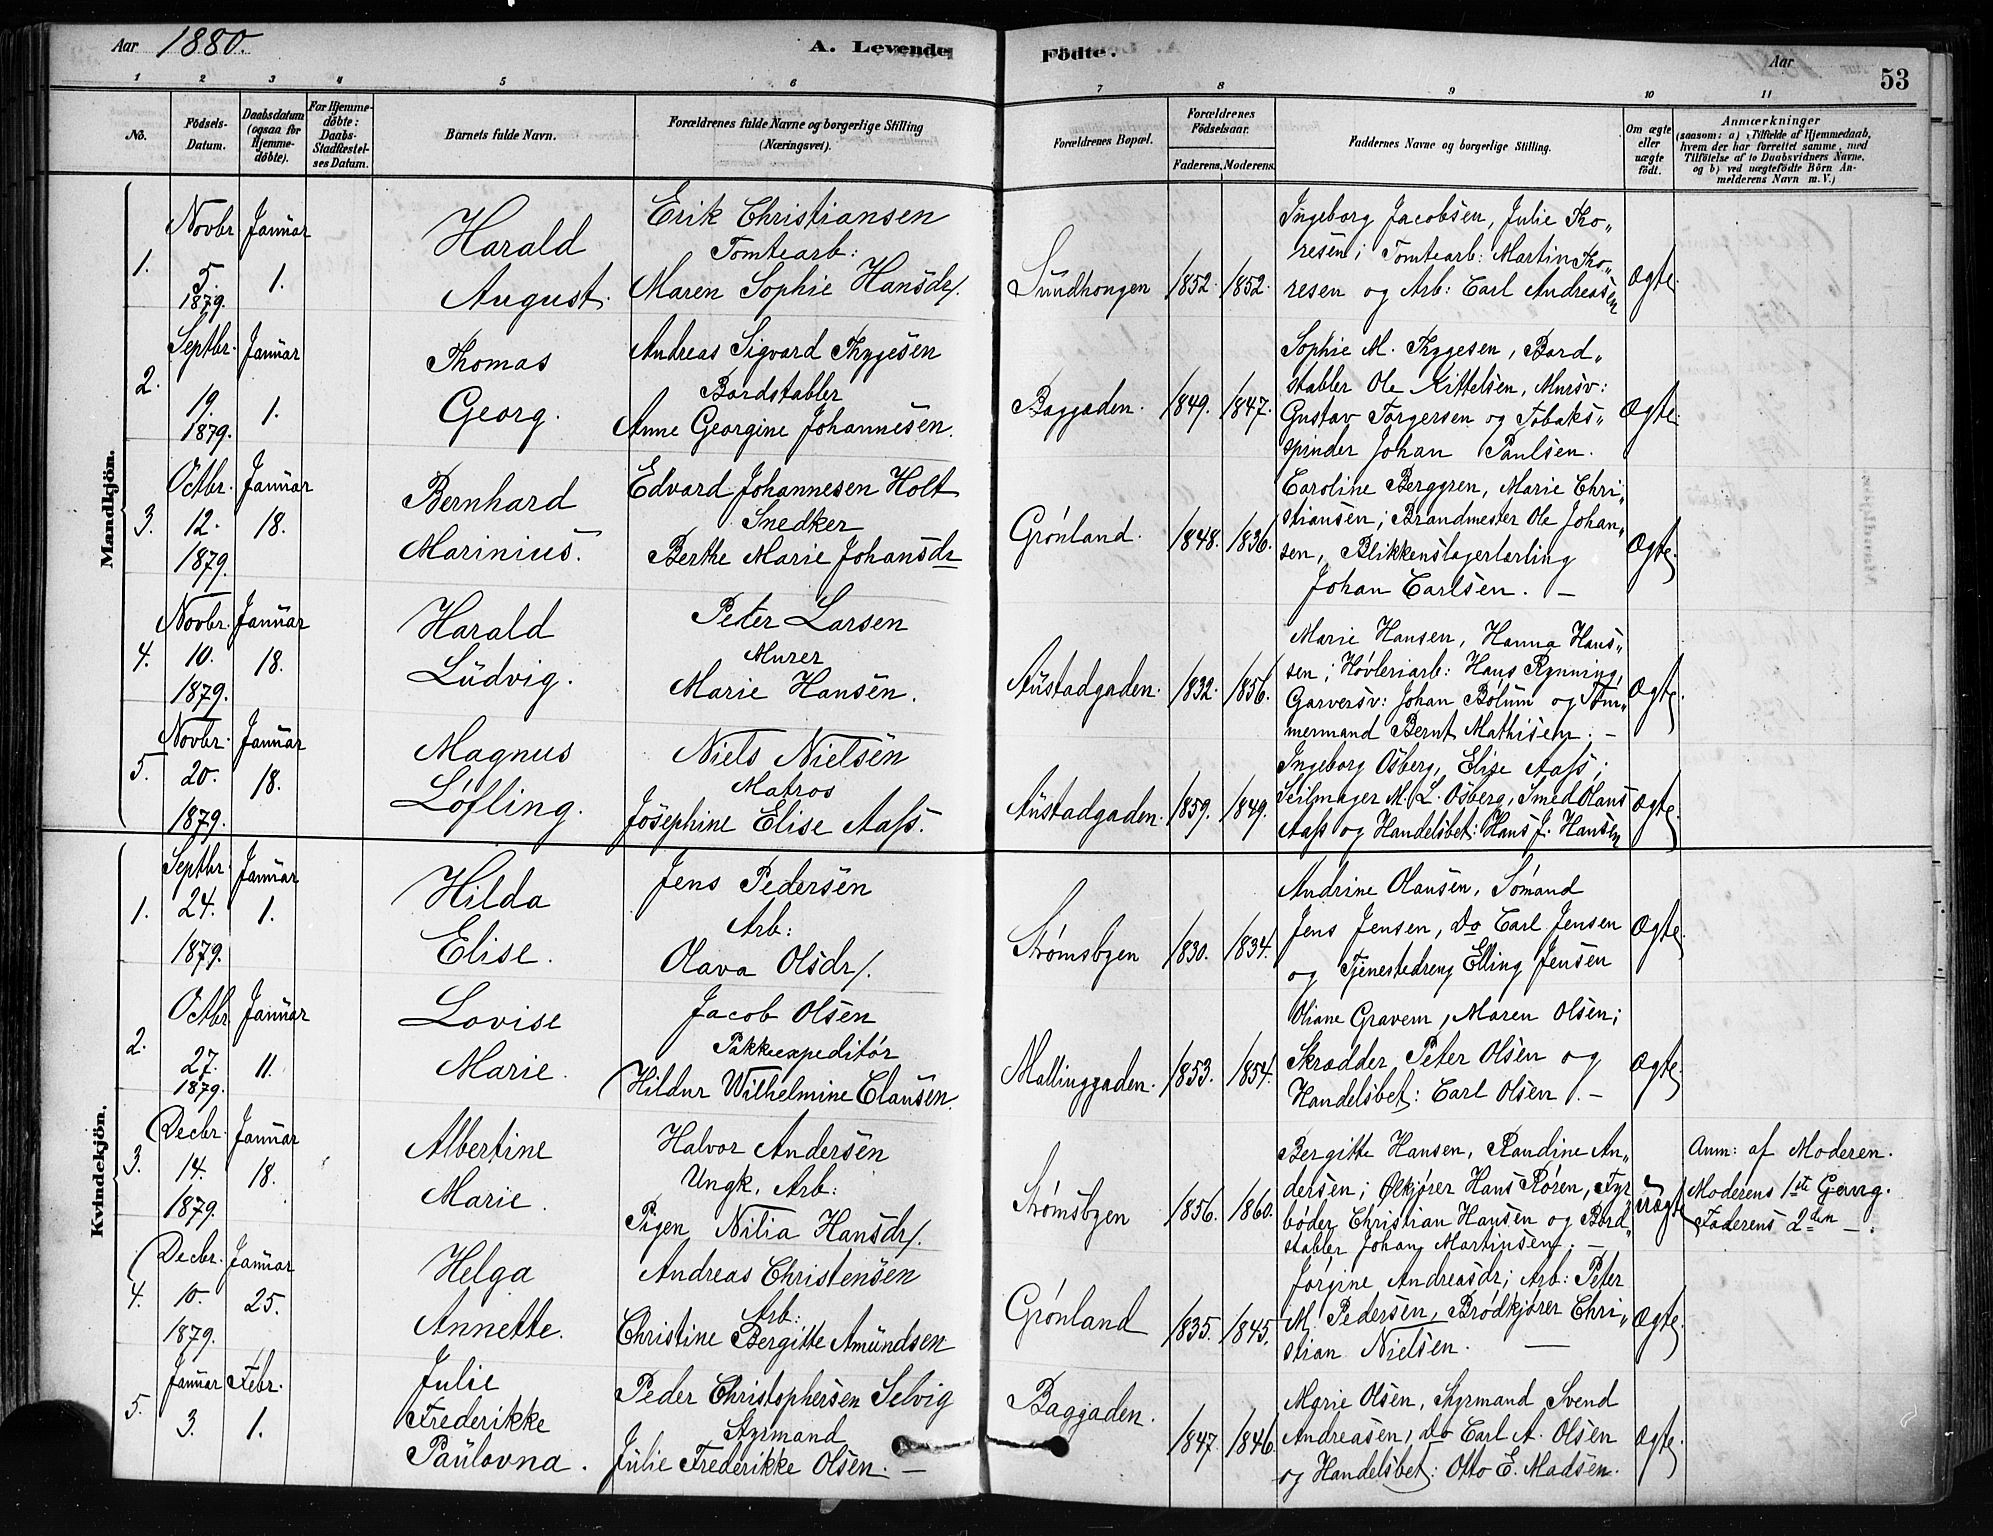 Aar 1880.
A. Levende Födte.
Aar
53
1 2 3 4 5 6 7 8 9 10 11
No.
Födsels-
Datum.
Daabsdatum
(ogsaa for
Hjemme-
döbte).
For Hjemme-
döbte:
Daabs-
Stadfæstel-
ses Datum.
Barnets fulde Navn.
Forældrenes fulde Navne og borgerlige Stilling
(Næringsvei).
Forældrenes Bopæl.
Forældrenes
Födselsaar.
Faderens. Moderens.
Faddernes Navne og borgerlige Stilling.
Om ægte
eller
uægte
födt.
Anmærkninger
(saasom: a) i Tilfælde af Hjemmedaab,
hvem der har forrettet samme, med
Tilföielse af to Daabsvidners Navne,
og b) ved uægtefödte Börn An-
melderens Navn m. V.)
Mandkjön.
1.
Novbr
5.
1879.
Januar
1.
Harald
August.
Erik Christiansen
Tomtearb:
Maren Sophie Hansdr.
Sundhougen
1852. 1852.
Ingeborg Jacobsen, Julie Tho-
resen; Tomtearb: Martin Tho-
resen og Arb: Carl Andreasen
Ægte.
2.
Septbr.
19.
1879.
Januar
1.
Thomas
Georg.
Andreas Sigvard Thygesen
Bordstabler
Anne Georgine Johannesen.
Baggaden.
1849. 1847.
Sophie M. Thygesen, Bord-
stabler Ole Kittelsen, Mursv:
Gustav Torgersen og Tobaks-
spinder Johan Paulsen.
Ægte.
3.
Octbr.
12.
1879.
Januar
18.
Bernhard
Marinius.
Edvard Johannesen Holt
Snedker
Berthe Marie Johansdr
Grønland.
1848. 1836.
Caroline Berggren, Marie Chri-
stiansen; Brandmester Ole Johan-
sen, Blikkenslagerlærling
Johan Carlsen. —
Ægte.
4.
Novbr.
10.
1879.
Januar
18.
Harald
Ludvig.
Peter Larsen
Murer
Marie Hansen.
Austadgaden.
1832. 1856.
Marie Hansen, Hanna Hans-
sen; Høvleriarb: Hans Rynning,
Garversv: Johan Bølum og Tøm-
mermand Bernt Mathisen. —
Ægte.
5.
Novbr.
20.
1879.
Januar
18.
Magnus
Løfling.
Niels Nielsen
Matros
Josephine Elise Aass.
Austadgaden.
1859. 1849.
Ingeborg Osberg, Elise Aass;
Seilmager M. L. Osberg, Smed Olaus
Aass og Handelsbet: Hans J. Hansen
Ægte.
Kvindekjön.
1.
Septbr.
24.
1879.
Januar
1.
Hilda
Elise.
Jens Pedersen
Arb:
Olava Olsdr.
Strømsbyen
1830. 1834.
Andrine Olausen, Sømand
Jens Jensen, Do Carl Jensen
og Tjenestedreng Elling Jensen
Ægte.
2.
Octbr
27.
1879.
Januar
11.
Lovise
Marie.
Jacob Olsen
Pakkexpeditør
Hildur Wilhelmine Clausen.
Mallinggaden.
1853. 1854.
Oliane Gravem, Maren Olsen;
Skrædder Peter Olsen og
Handelsbet: Carl Olsen. —
Ægte.
3.
Decbr.
14.
1879.
Januar
18.
Albertine
Marie.
Halvor Andersen
Ungk. Arb:
Pigen Nilia Hansdr.
Strømsbyen
1856. 1860.
Bergitte Hansen, Randine An-
dersen; Ølkjører Hans Røren, Fyr-
bøder Christian Hansen og Bord-
stabler Johan Martinsen. —
uægte
Anm: af Moderen.
Moderens 1ste Gang.
Faderens 2den —.
4.
Decbr.
10.
1879.
Januar
25.
Helga
Annette.
Andreas Christensen
Arb:
Christine Bergitte Amundsen
Grønland
1835. 1845.
Jørgine Andreasdr; Arb: Peter
M. Pedersen, Brødkjører Chri-
stian Nielsen. —
Ægte.
5.
Januar
3.
Febr.
1.
Julie
Frederikke
Paulovna.
Peder Christophersen Selvig
Styrmand
Julie Frederikke Olsen. —
Baggaden.
1847. 1846.
Marie Olsen, Styrmand Svend
Andreasen, Do Carl A. Olsen
og Handelsbet: Otto E. Madsen.
Ægte.